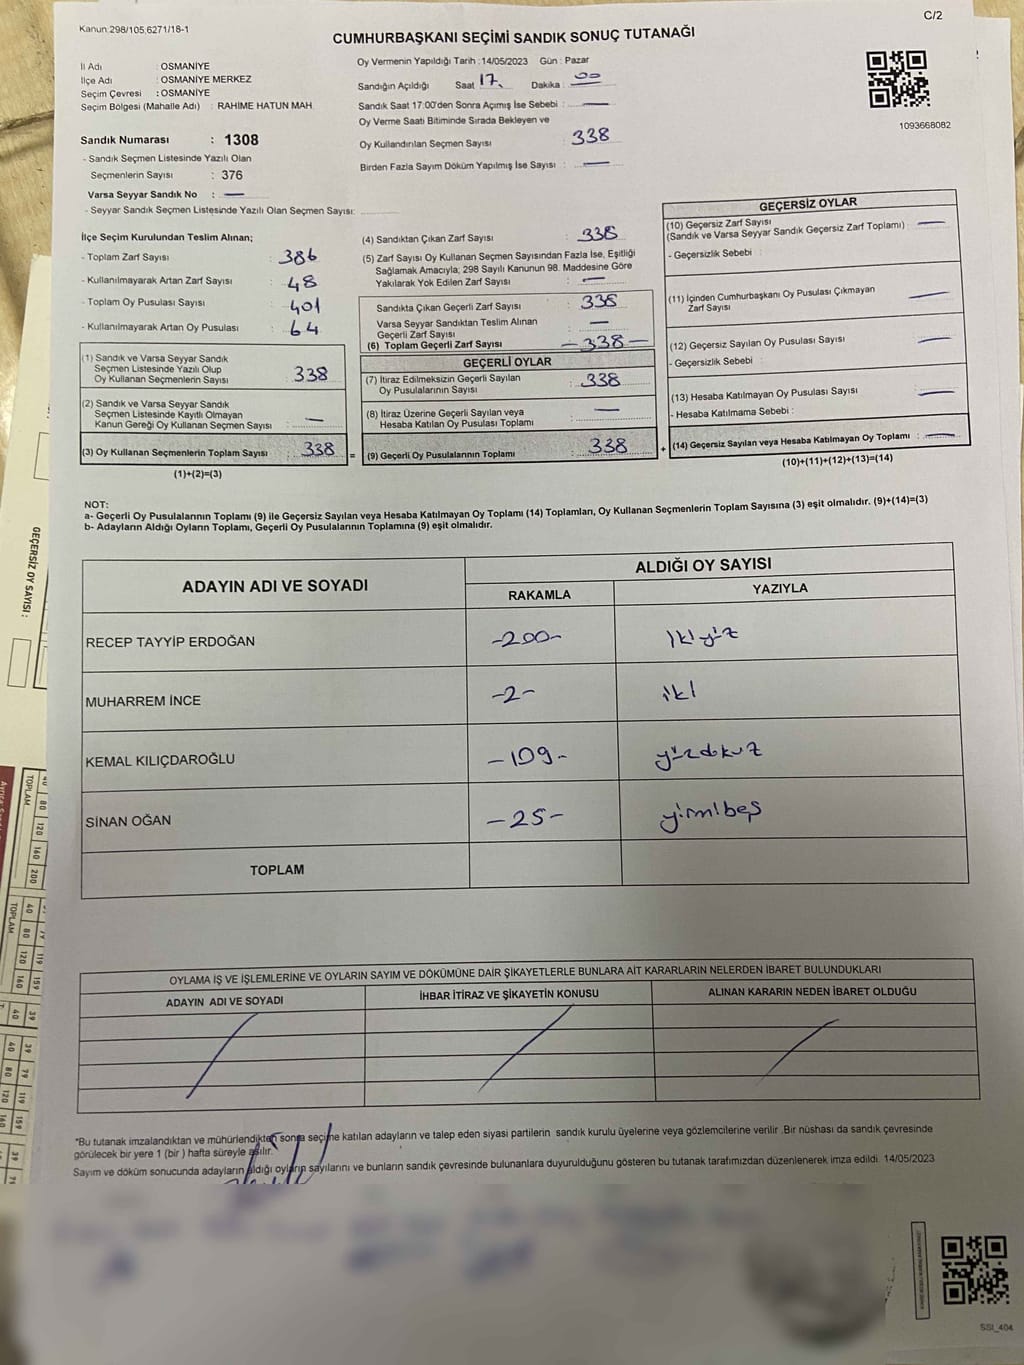 Kanun:298/105,6271/18-1
C/2
CUMHURBAŞKANI SEÇİMİ SANDIK SONUÇ TUTANAĞI
İl Adı : OSMANİYE
İlçe Adı : OSMANİYE MERKEZ
Seçim Çevresi : OSMANİYE
Seçim Bölgesi (Mahalle Adı) : RAHİME HATUN MAH
Oy Vermenin Yapıldığı Tarih :14/05/2023 Gün : Pazar
Sandığın Açıldığı Saat 17. Dakika : 00
Sandık Saat 17:00'den Sonra Açımış İse Sebebi : —
Oy Verme Saati Bitiminde Sırada Bekleyen ve
Oy Kullandırılan Seçmen Sayısı : 338
Birden Fazla Sayım Döküm Yapılmış İse Sayısı : —
1093668082
Sandık Numarası : 1308
- Sandık Seçmen Listesinde Yazılı Olan
Seçmenlerin Sayısı : 376
Varsa Seyyar Sandık No : —
- Seyyar Sandık Seçmen Listesinde Yazılı Olan Seçmen Sayısı:
İlçe Seçim Kurulundan Teslim Alınan;
- Toplam Zarf Sayısı : 386
- Kullanılmayarak Artan Zarf Sayısı : 48
- Toplam Oy Pusulası Sayısı : 401
- Kullanılmayarak Artan Oy Pusulası : 64
(1) Sandık ve Varsa Seyyar Sandık
Seçmen Listesinde Yazılı Olup
Oy Kullanan Seçmenlerin Sayısı : 338
(2) Sandık ve Varsa Seyyar Sandık
Seçmen Listesinde Kayıtlı Olmayan
Kanun Gereği Oy Kullanan Seçmen Sayısı : —
(3) Oy Kullanan Seçmenlerin Toplam Sayısı : 338 =
(1)+(2)=(3)
(4) Sandıktan Çıkan Zarf Sayısı : 338
(5) Zarf Sayısı Oy Kullanan Seçmen Sayısından Fazla İse, Eşitliği
Sağlamak Amacıyla; 298 Sayılı Kanunun 98. Maddesine Göre
Yakılarak Yok Edilen Zarf Sayısı : —
Sandıkta Çıkan Geçerli Zarf Sayısı : 338
Varsa Seyyar Sandıktan Teslim Alınan
Geçerli Zarf Sayısı : —
(6) Toplam Geçerli Zarf Sayısı : —338—
GEÇERLİ OYLAR
(7) İtiraz Edilmeksizin Geçerli Sayılan
Oy Pusulalarının Sayısı : 338
(8) İtiraz Üzerine Geçerli Sayılan veya
Hesaba Katılan Oy Pusulası Toplamı : —
(9) Geçerli Oy Pusulalarının Toplamı : 338 +
GEÇERSİZ OYLAR
(10) Geçersiz Zarf Sayısı
(Sandık ve Varsa Seyyar Sandık Geçersiz Zarf Toplamı) : —
- Geçersizlik Sebebi :
(11) İçinden Cumhurbaşkanı Oy Pusulası Çıkmayan
Zarf Sayısı : —
(12) Geçersiz Sayılan Oy Pusulası Sayısı : —
- Geçersizlik Sebebi :
(13) Hesaba Katılmayan Oy Pusulası Sayısı : —
- Hesaba Katılmama Sebebi :
(14) Geçersiz Sayılan veya Hesaba Katılmayan Oy Toplamı : —
(10)+(11)+(12)+(13)=(14)
NOT:
a- Geçerli Oy Pusulalarının Toplamı (9) ile Geçersiz Sayılan veya Hesaba Katılmayan Oy Toplamı (14) Toplamları, Oy Kullanan Seçmenlerin Toplam Sayısına (3) eşit olmalıdır. (9)+(14)=(3)
b- Adayların Aldığı Oyların Toplamı, Geçerli Oy Pusulalarının Toplamına (9) eşit olmalıdır.
ADAYIN ADI VE SOYADI
ALDIĞI OY SAYISI
RAKAMLA YAZIYLA
RECEP TAYYİP ERDOĞAN -200- ikiyüz
MUHARREM İNCE -2- iki
KEMAL KILIÇDAROĞLU -109- yüzdokuz
SİNAN OĞAN -25- yirmibeş
TOPLAM
OYLAMA İŞ VE İŞLEMLERİNE VE OYLARIN SAYIM VE DÖKÜMÜNE DAİR ŞİKAYETLERLE BUNLARA AİT KARARLARIN NELERDEN İBARET BULUNDUKLARI
ADAYIN ADI VE SOYADI İHBAR İTİRAZ VE ŞİKAYETİN KONUSU ALINAN KARARIN NEDEN İBARET OLDUĞU
*Bu tutanak imzalandıktan ve mühürlendikten sonra seçime katılan adayların ve talep eden siyasi partilerin sandık kurulu üyelerine veya gözlemcilerine verilir .Bir nüshası da sandık çevresinde
görülecek bir yere 1 (bir ) hafta süreyle asılır.
Sayım ve döküm sonucunda adayların aldığı oyların sayılarını ve bunların sandık çevresinde bulunanlara duyurulduğunu gösteren bu tutanak tarafımızdan düzenlenerek imza edildi. 14/05/2023
SSI_404
GEÇERSİZ OY SAYISI :
TOPLAM
40 80 120 160 200
TOPLAM
40 80 120 160
119 159
39 79 119 159
40 80 120 160